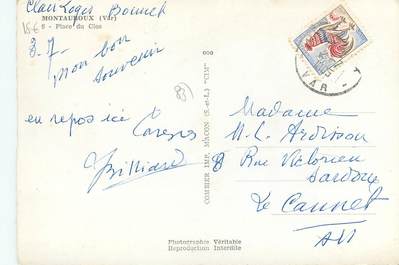 Clair Logis Bonnet
MONTAUROUX (Var)
6 - Place du Clos
3-7-
Mon bon
souvenir
83
en repos ici Caresses
Billiard
COMBIER IMP. MÂCON (S.-et-L.) "CIM"
VAR
Madame
M. L. Ardisson
8 Rue Victorien
Sardou
Le Cannet
AM
Photographie Véritable
Reproduction Interdite